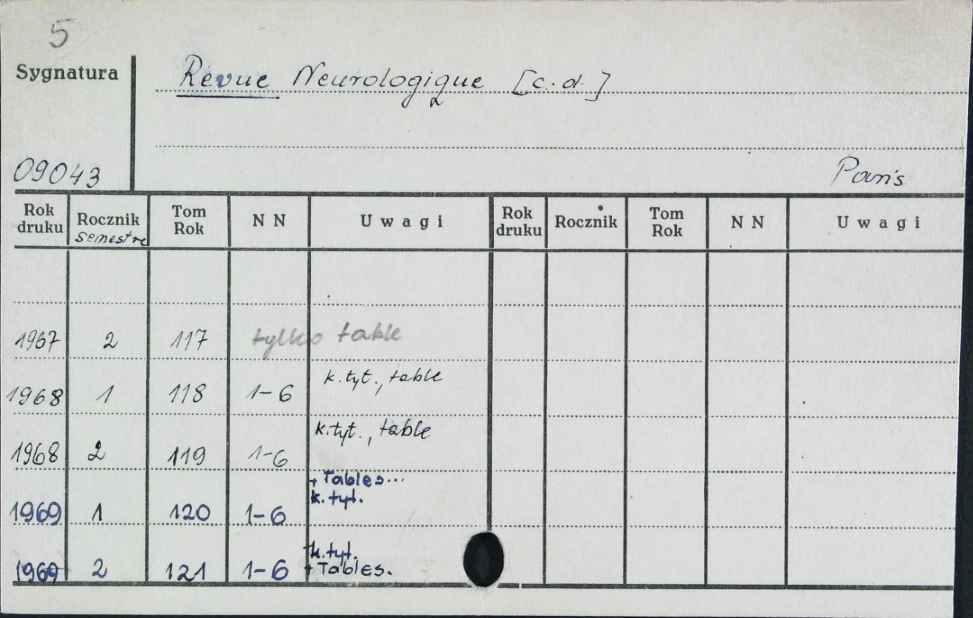 5
Sygnatura
Revue Neurologique [c.d.]
09043
Paris
Rok druku Rocznik semestre Tom Rok N N Uwagi Rok druku Rocznik Tom Rok N N Uwagi
1967 2 117 tylko table
1968 1 118 1-6 k.tyt., table
1968 2 119 1-6 k.tyt., table
+ Tables...
1969 1 120 1-6 k.tyt.
k.tyt.
1969 2 121 1-6 + Tables.